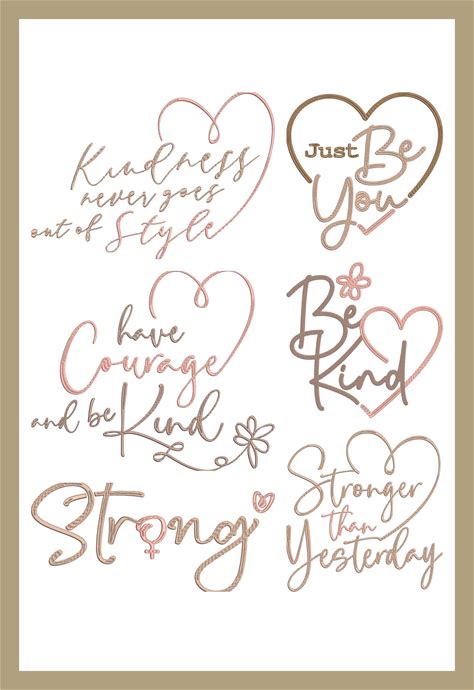 Kindness
never goes
out of Style
Just Be
You
have
Courage
and be Kind
Be
Kind
Strong
Stronger
than
Yesterday